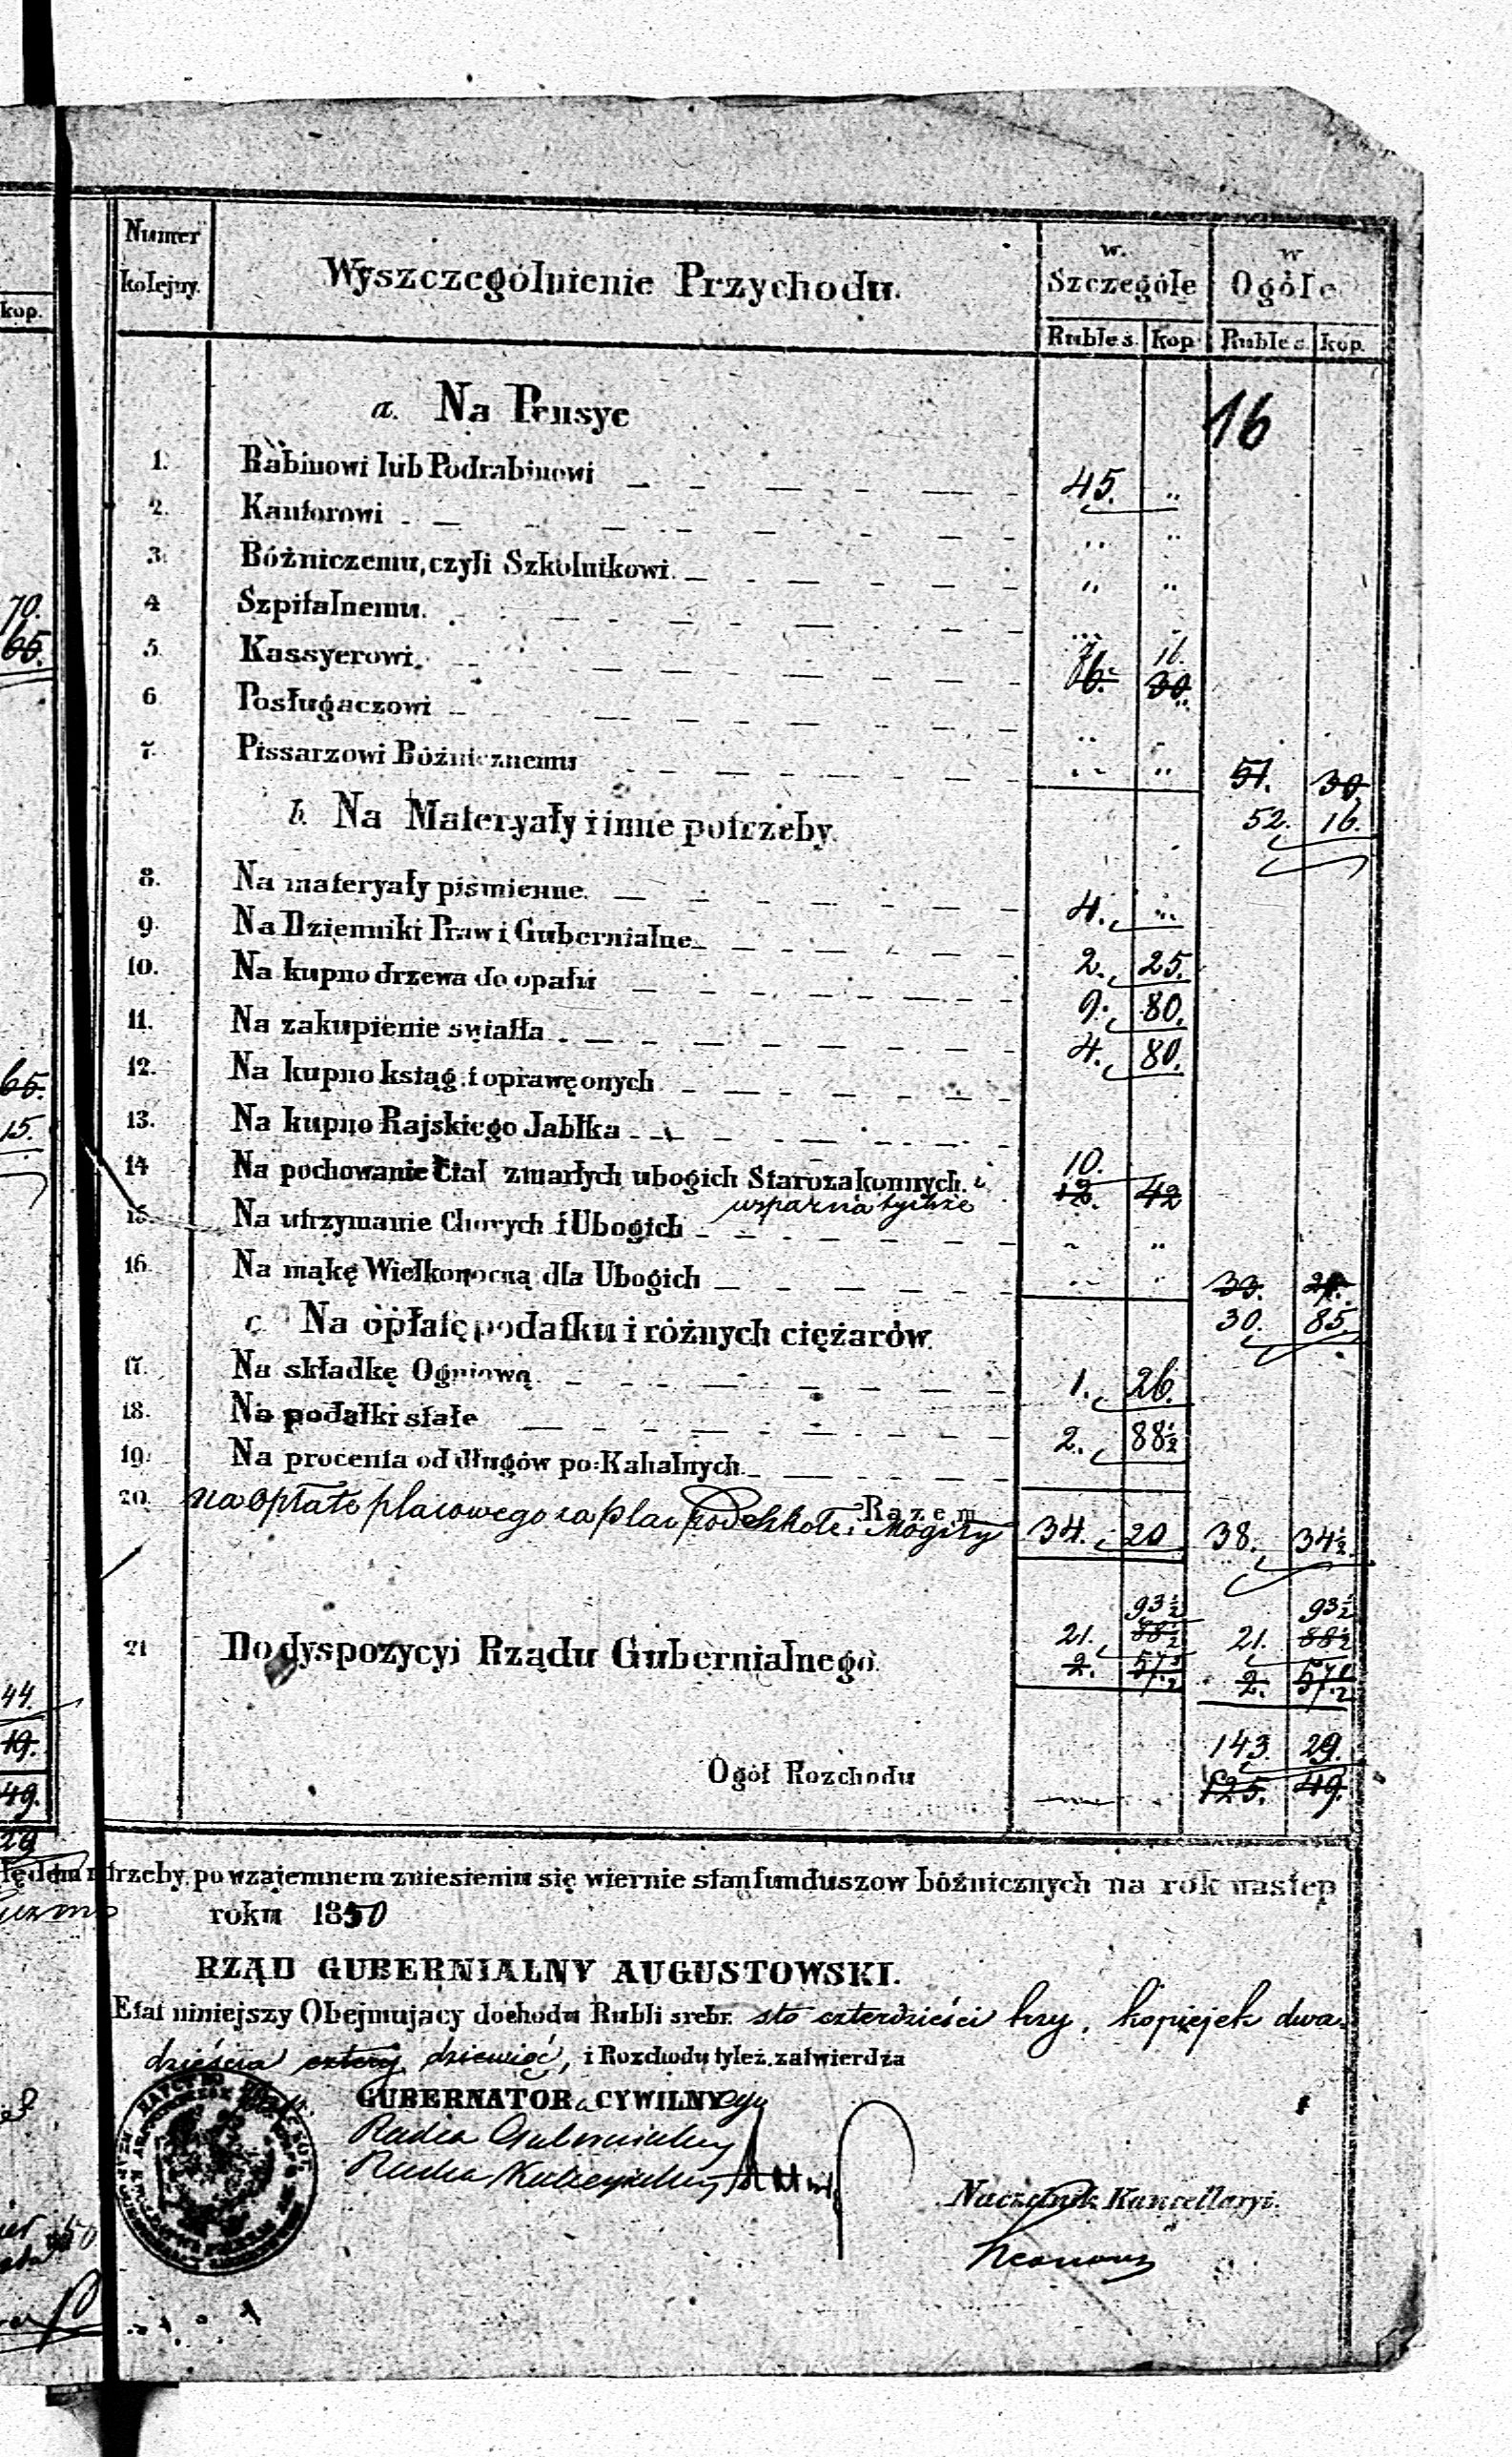 Numer kolejny.
Wyszczególnienie Przychodu.
w. Szczególe
w Ogóle
kop.
Rubles. kop Rubles. kop.
16
a. Na Pensye
1. Rabinowi lub Podrabinowi 45. „
2. Kantorowi „ „
3. Bóżniczemu, czyli Szkolnikowi. „ „
4 Szpitalnemu.
70.
65.
5. Kassyerowi. 7. 16.
6. 30
6 Posługaczowi
7. Pissarzowi Bóżnicznemu 51. 30
b. Na Materyały i inne potrzeby. 52. 16.
8. Na materyały piśmienne. 4. „
9. Na Dzienniki Praw i Gubernialne 2. 25.
10. Na kupno drzewa do opału 9. 80.
11. Na zakupienie swiatła 4. 80.
12. Na kupno ksiąg i oprawę onych
65.
15.
13. Na kupno Rajskiego Jabłka
14 Na pochowanie Ciał zmarłych ubogich Starozakonnych i 10.
wsparcia tychże 12. 42
15. Na utrzymanie Chorych i Ubogich
16. Na mąkę Wielkonocną dla Ubogich 33. 27.
c. Na opłatę podatku i różnych ciężarów. 30. 85.
17. Na składkę Ogniową 1. 26.
18. Na podatki stałe 2. 88½
19. Na procenta od długów po-Kahalnych
Razem
20. na opłatę placowego za plac pod Szkołę i Mogiły 34. 20 38. 34½
93½ 93½
21 Do dyspozycyi Rządu Gubernialnego. 21. 88½ 21. 88½
2. 57½ 2. 57½
44.
19.
143. 29.
Ogół Rozchodu 125. 49.
49.
29
trzeby, po wzajemnem zniesieniu się wiernie stan funduszow bóźnicznych na rok następ
roku 1850
RZĄD GUBERNIALNY AUGUSTOWSKI.
Etat niniejszy Obejmujący dochodu Rubli srebr. sto czterdzieści trzy, kopiejek dwa-
dzieścia cztery dziewięć, i Rozchodu tyleż. zatwierdza
GUBERNATOR CYWILNY
Radca Gubernialny
Radca
Naczelnik Kancellaryi.